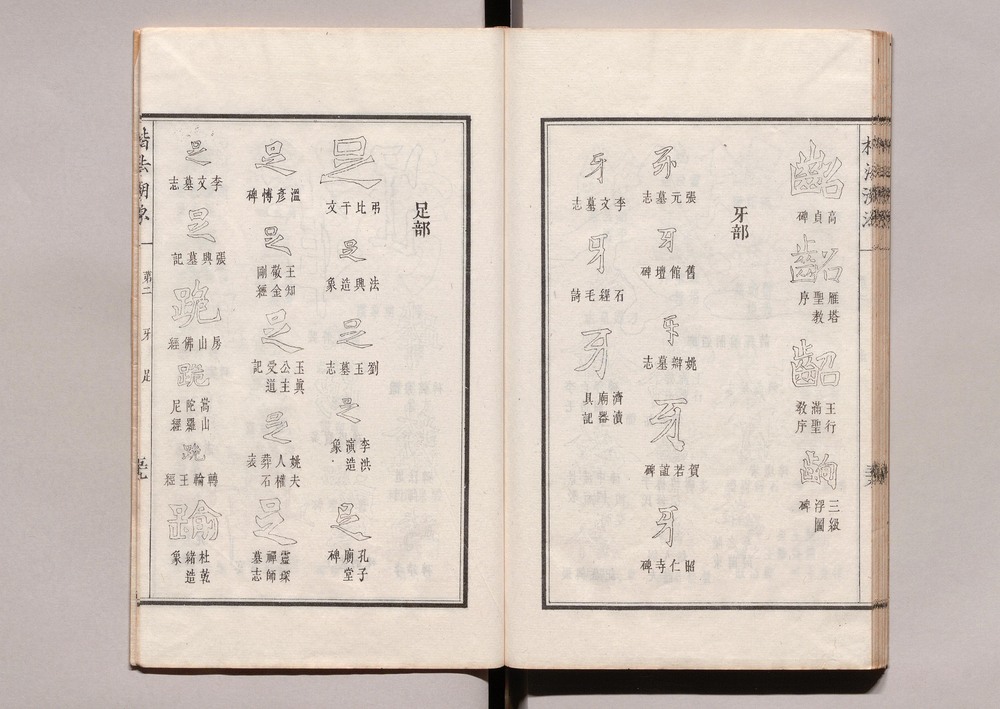 齠
高貞碑
齠
雁塔聖教序
齠
王行滿聖教序
三級浮圖碑
牙部
牙
張元墓志
牙
舊館壇碑
牙
姚辯墓志
牙
賀若誼碑
牙
昭仁寺碑
牙
李文墓志
牙
石經毛詩
牙
濟瀆廟器具記
足部
足
弔比干文
足
法興造象
足
劉玉墓志
足
李洪演造象
足
孔子廟堂碑
足
溫彥博碑
足
王知敬金剛經
足
玉真公主受道記
足
姚夫人權葬石表
足
靈琛禪師墓志
足
李文墓志
足
張興墓記
跪
房山佛經
跪
嵩山陀羅尼經
跪
轉輪王經
踰
杜乾緒造象
楷法溯源 第二 牙 足